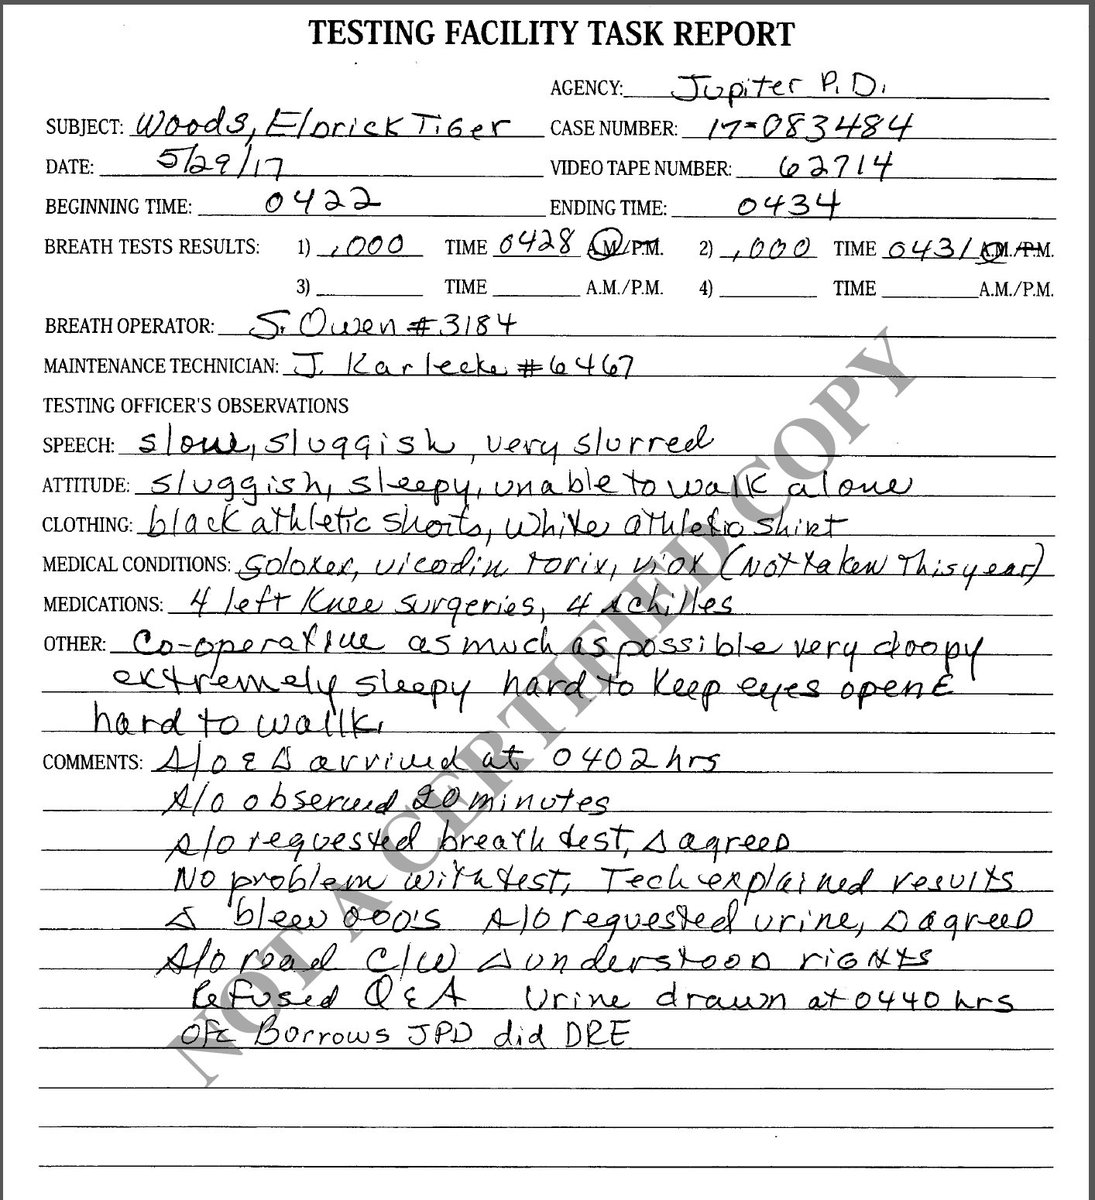 TESTING FACILITY TASK REPORT
AGENCY: Jupiter P.D.
SUBJECT: Woods, Eldrick Tiger CASE NUMBER: 17-083484
DATE: 5/29/17 VIDEO TAPE NUMBER: 62714
BEGINNING TIME: 0422 ENDING TIME: 0434
BREATH TESTS RESULTS: 1) .000 TIME 0428 A.M./P.M. 2) .000 TIME 0431 A.M./P.M.
3) TIME A.M./P.M. 4) TIME A.M./P.M.
BREATH OPERATOR: S. Owen #3184
MAINTENANCE TECHNICIAN: J. Karlecke #6467
TESTING OFFICER'S OBSERVATIONS
SPEECH: slow, sluggish, very slurred
ATTITUDE: sluggish, sleepy, unable to walk alone
CLOTHING: black athletic shorts, white athletic shirt
MEDICAL CONDITIONS: Soloxer, vicodin torix, viox (not taken This year)
MEDICATIONS: 4 left Knee surgeries, 4 Achilles
OTHER: Co-operative as much as possible very doopy
extremely sleepy hard to keep eyes open &
hard to walk.
COMMENTS: A/O & Δ arrived at 0402 hrs
A/O observed 20 minutes
A/O requested breath test, Δ agreed
No problem with test, Tech explained results
Δ blew 000's A/O requested urine, Δ agreed
A/O read C/W Δ understood rights
Refused Q & A Urine drawn at 0440 hrs
Ofc Borrows JPD did DRE
NOT A CERTIFIED COPY